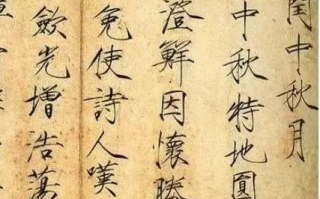 閏中秋月
中秋特地圓
澄鮮因懷勝
免使詩人嘆
歛光增浩蕩